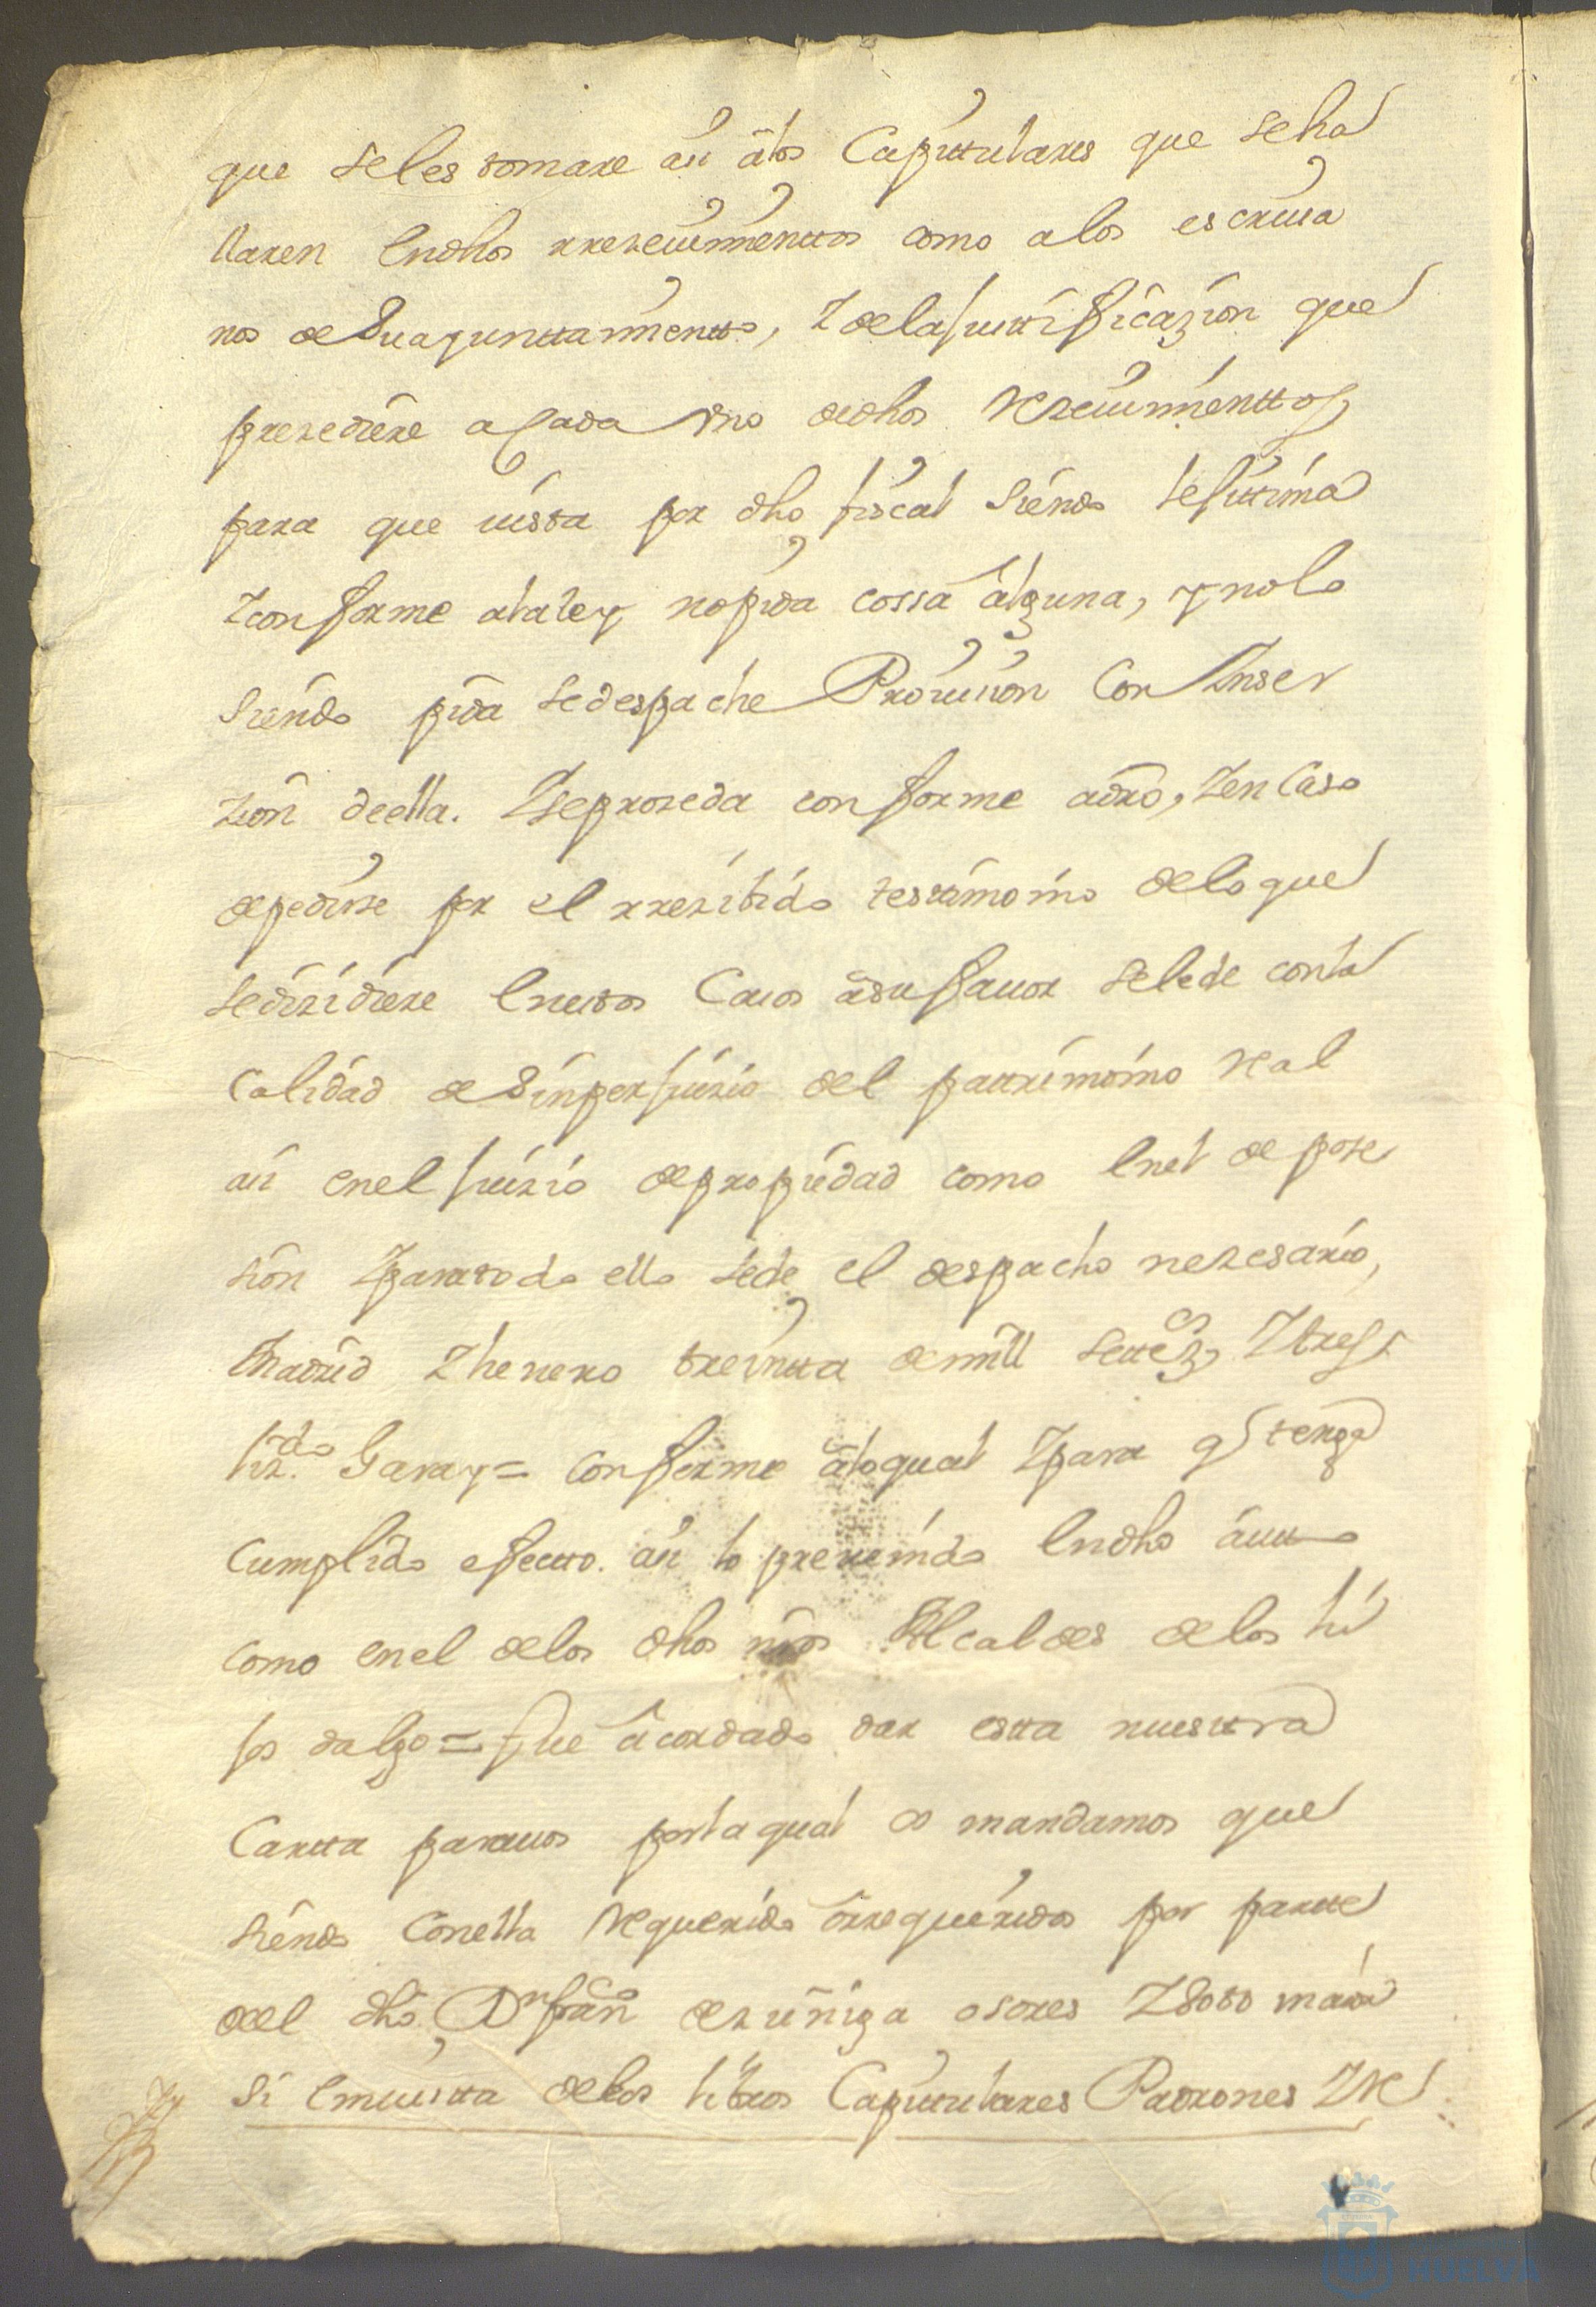 que seles tomare asi alos Capitulares que se ha
llaren En dhos rrezeuimienttos como alos escriua
nos de Su ayunttamientto, Y de la justificazion que
prezediere a Cada Vno de dhos Rezeuimienttos
para que uista por dho fiscal siendo lejitima
Y conforme ala ley no pida cossa alguna, y no lo
siendo pida se despache Prouision Con Inser
zion de ella. Y se prozeda conforme a dro, Y en Caso
de pedirse por el rrezibido testimonio de lo que
se dizidiere En estos Casos a su fauor se le de con la
Calidad de Sin perjuizio del pattrimonio Real
asi en el juizio de propiedad como En el de pose
sion Y para todo ello se de el despacho nezesario,
Madrid Y henero treintta de mill settez.os Y tres
liz.do Garay = Conforme alo qual Y para q tenga
Cumplido efectto. asi lo preuenido En dho autto
como en el de los dhos nros Alcaldes de los hi
jos dalgo = fue acordado dar esta nuestra
Cartta para uos por la qual os mandamos que
siendo Con ella Requerido o rrequeridos por partte
del dho Dn fran.co de zuñiga osores Y Soto mador
Si En uista de los libros Capitulares Padrones Y Re